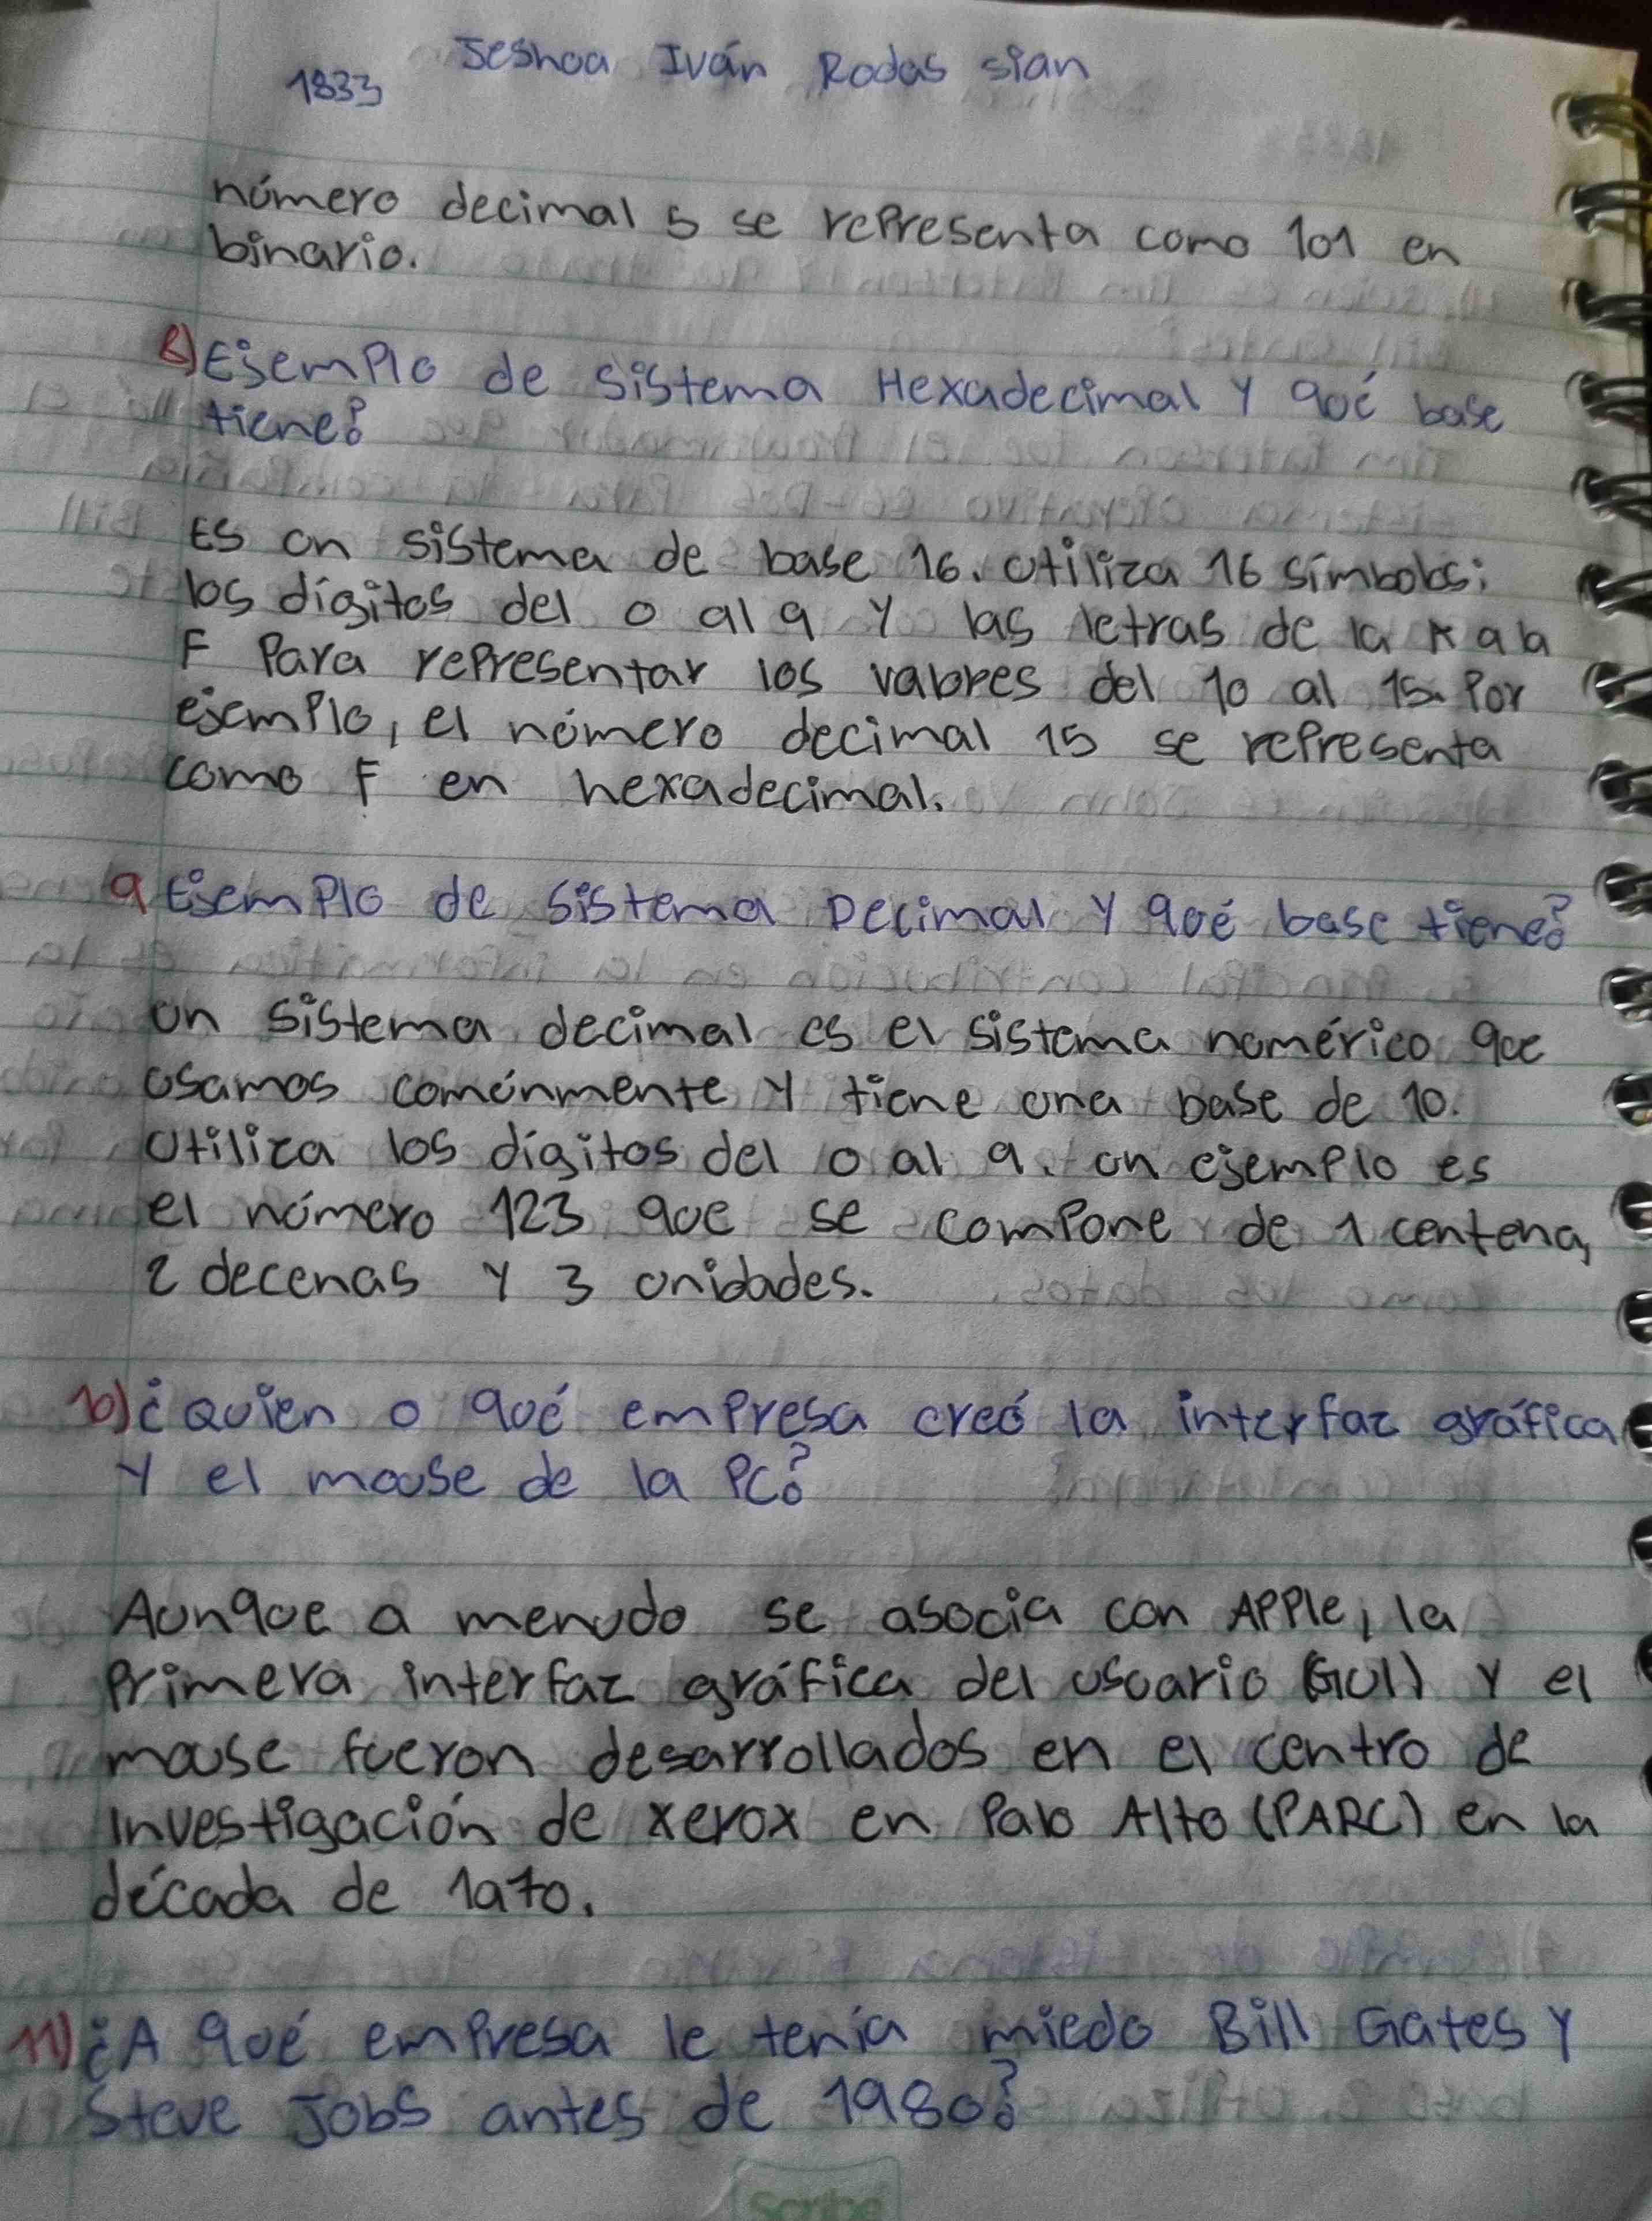 Jeshua Iván Rodas sian
1833
número decimal 5 se representa como 101 en
binario.
8) Ejemplo de sistema Hexadecimal y qué base
tiene?
Es un sistema de base 16. utiliza 16 símbolos:
los dígitos del 0 al 9 y las letras de la A a la
F Para representar los valores del 10 al 15. Por
ejemplo, el número decimal 15 se representa
como F en hexadecimal.
9 Ejemplo de sistema Decimal y qué base tiene?
un sistema decimal es el sistema numérico que
usamos comúnmente y tiene una base de 10.
Utiliza los dígitos del 0 al 9. un ejemplo es
el número 123 que se compone de 1 centena,
2 decenas y 3 unidades.
10) ¿Quien o qué empresa creó la interfaz gráfica
y el mouse de la PC?
Aunque a menudo se asocia con Apple, la
Primera interfaz gráfica del usuario (GUI) y el
mouse fueron desarrollados en el centro de
investigación de xerox en Palo Alto (PARC) en la
década de 1970.
11) ¿A qué empresa le tenía miedo Bill Gates y
Steve Jobs antes de 1980?
Scribe